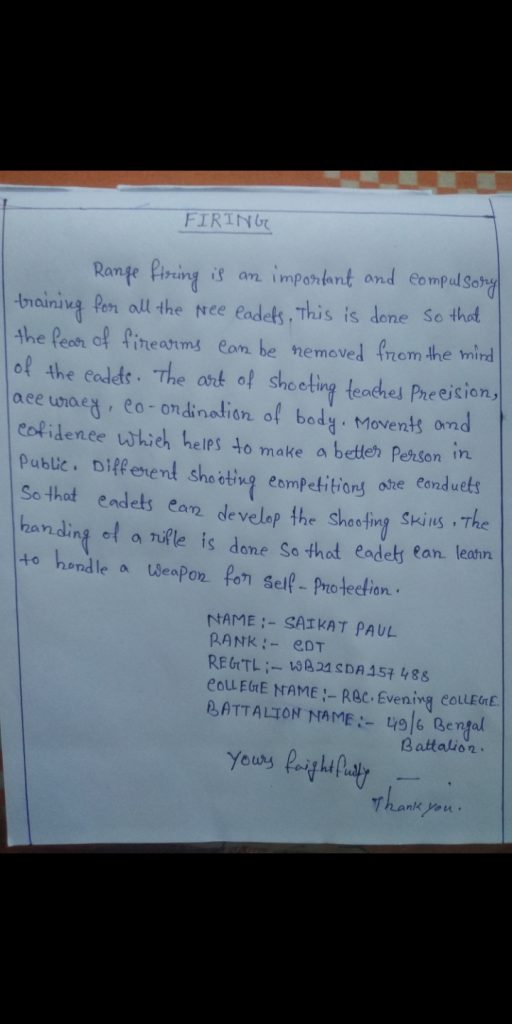 FIRING
Range firing is an important and compulsory
training for all the NCC cadets. This is done so that
the fear of firearms can be removed from the mind
of the cadets. The art of shooting teaches Precision,
accuracy, co-ordination of body. Movents and
cofidence which helps to make a better Person in
Public. Different shooting competitions are conducts
So that cadets can develop the shooting skills. The
handing of a rifle is done so that cadets can learn
to handle a weapon for self-Protection.
NAME :- SAIKAT PAUL
RANK :- CDT
REGTL :- WB21SDA157488
COLLEGE NAME :- RBC. Evening COLLEGE
BATTALION NAME :- 49/6 Bengal
Battalion.
Yours faightfully
Thank you.